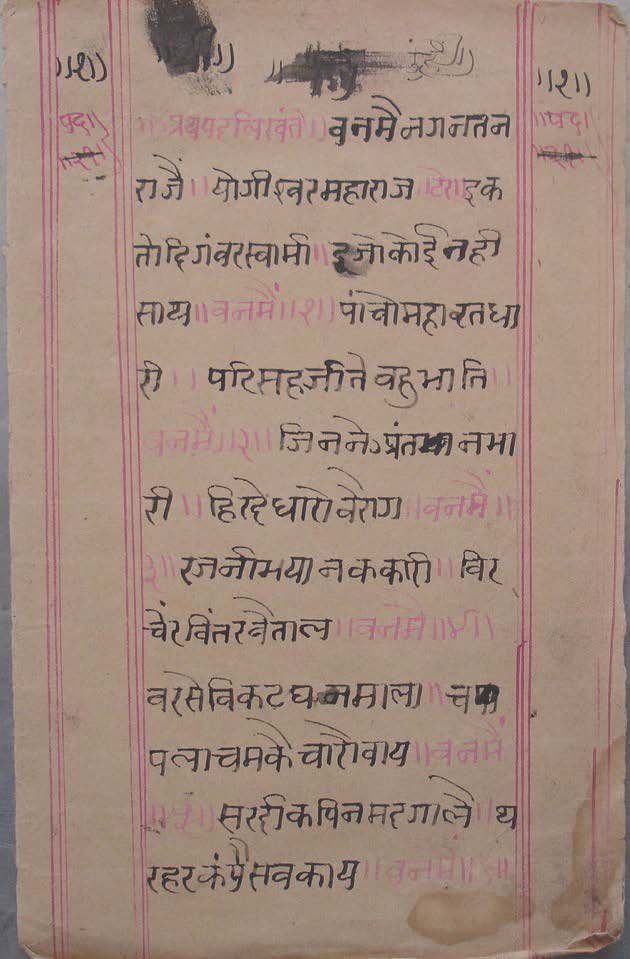 ॥१॥ ॥१॥
पद॥ अथपदलिख्यते॥ वनमैनगनतन ॥पद॥
राजैं॥ योगीश्वरमहाराज टेर॥ इक
तोदिगंवरस्वामी॥ दूजोकोईनही
साथ॥वनमैं॥१॥ पांचोमहाव्रतधा
री॥ परिसहजीतेवहुभाति॥
वनमैं॥२॥ जिनने नमा
री॥ हिरदेधारोवैराग॥वनमैं॥
३॥ रजनीभयानककारी॥ विर
चेंरविंतरवैताल॥वनमै॥४॥
वरसैविकटघनमाला॥ चप
पलाचमकैचारौवाय॥वनमैं
॥५॥ सरदीकपिनमदगालै॥थ
रहरकंपैसवकाय॥वनमैं॥